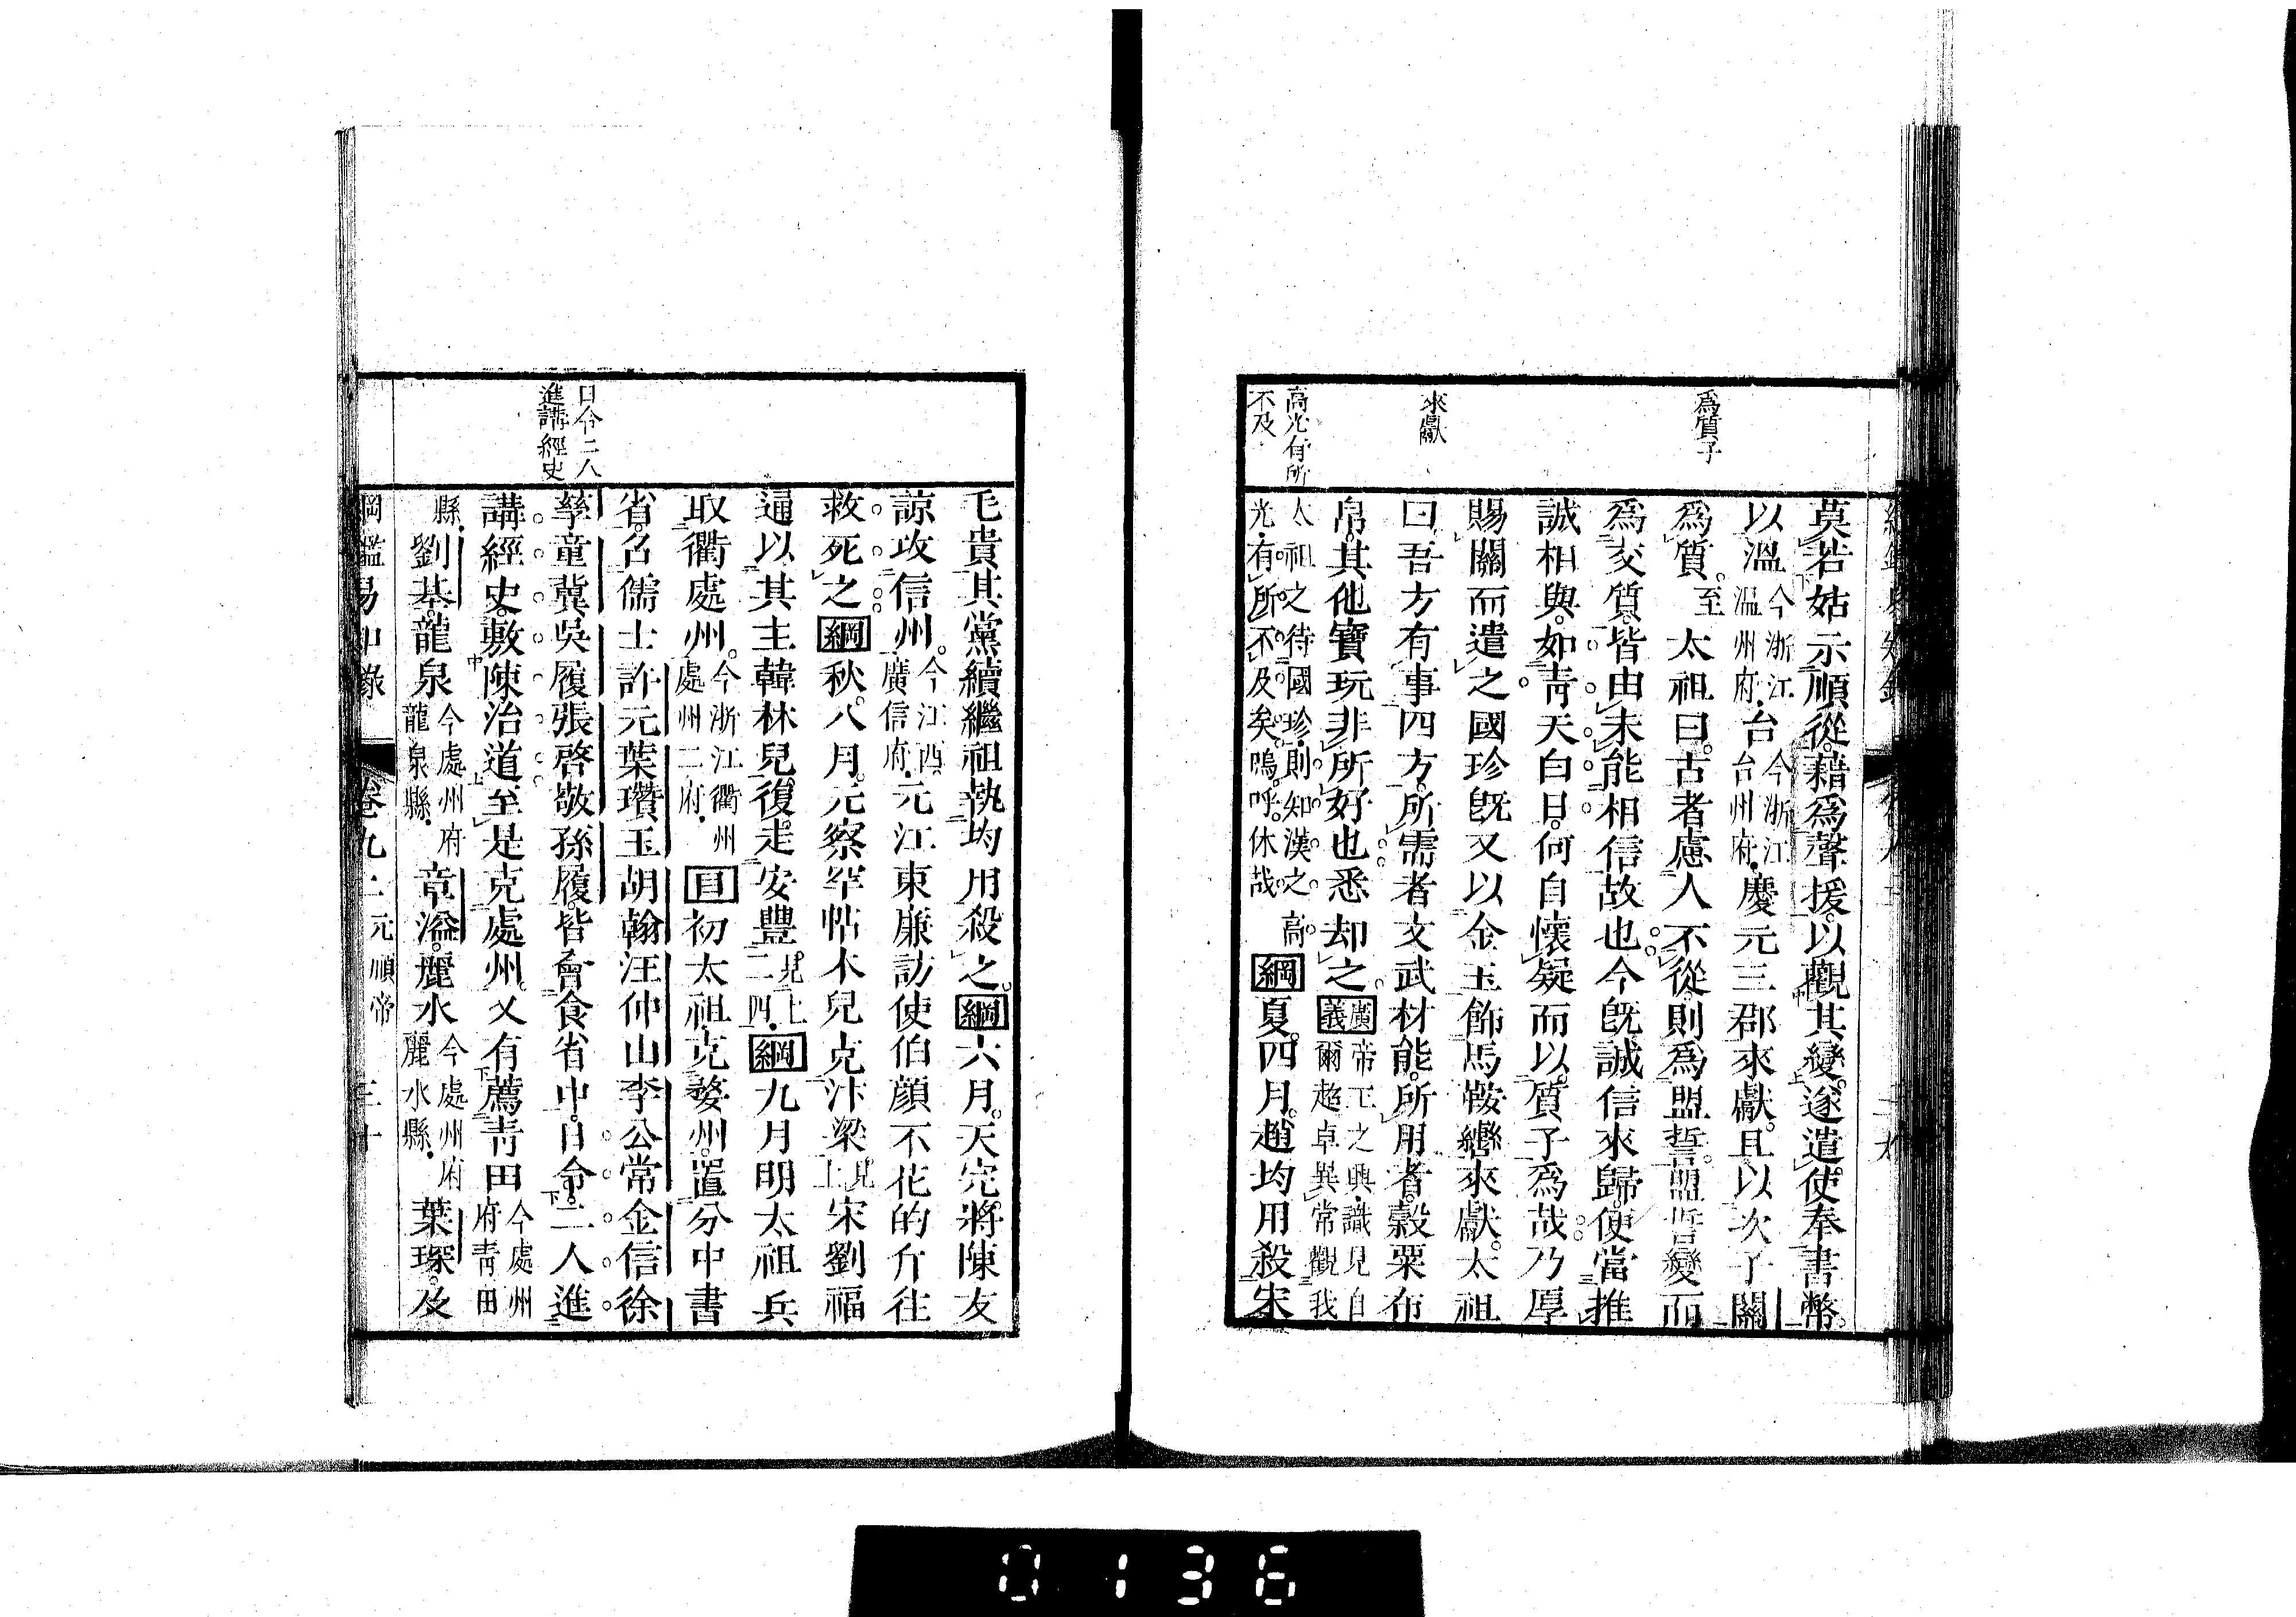 爲質子
來獻
高光有所
不及
莫若姑示順從藉爲聲援以觀其變遂遣使奉書幣
以溫今浙江溫州府台今浙江台州府慶元三郡來獻且以次子關
爲質至太祖曰古者慮人不從則爲盟誓盟誓變而
爲交質皆由未能相信故也今旣誠信來歸便當推
誠相與如靑天白日何自懷疑而以質子爲哉乃厚
賜關而遣之國珍旣又以金玉飾馬鞍轡來獻太祖
曰吾方有事四方所需者文武材能所用者穀粟布
帛其他寶玩非所好也悉却之廣義帝王之興識見自爾超卓異常觀我
太祖之待國珍則知漢之高光有所不及矣嗚呼休哉綱夏四月趙均用殺宋
日令二人
進講經史
毛貴其黨續繼祖執均用殺之綱六月天完將陳友
諒攻信州今江西廣信府元江東廉訪使伯顔不花的斤往
救死之綱秋八月元察罕帖木兒克汴梁見上宋劉福
通以其主韓林兒復走安豐見上二四綱九月明太祖兵
取衢處州今浙江衢州處州二府目初太祖克婺州置分中書
省召儒士許元葉瓚玉胡翰汪仲山李公常金信徐
孳童冀吳履張啓敬孫履皆會食省中日命二人進
講經史敷陳治道至是克處州又有薦靑田今處州府靑田
縣劉基龍泉今處州府龍泉縣章溢麗水今處州府麗水縣葉琛及
綱鑑易知錄 卷九二 元順帝 三十
0136